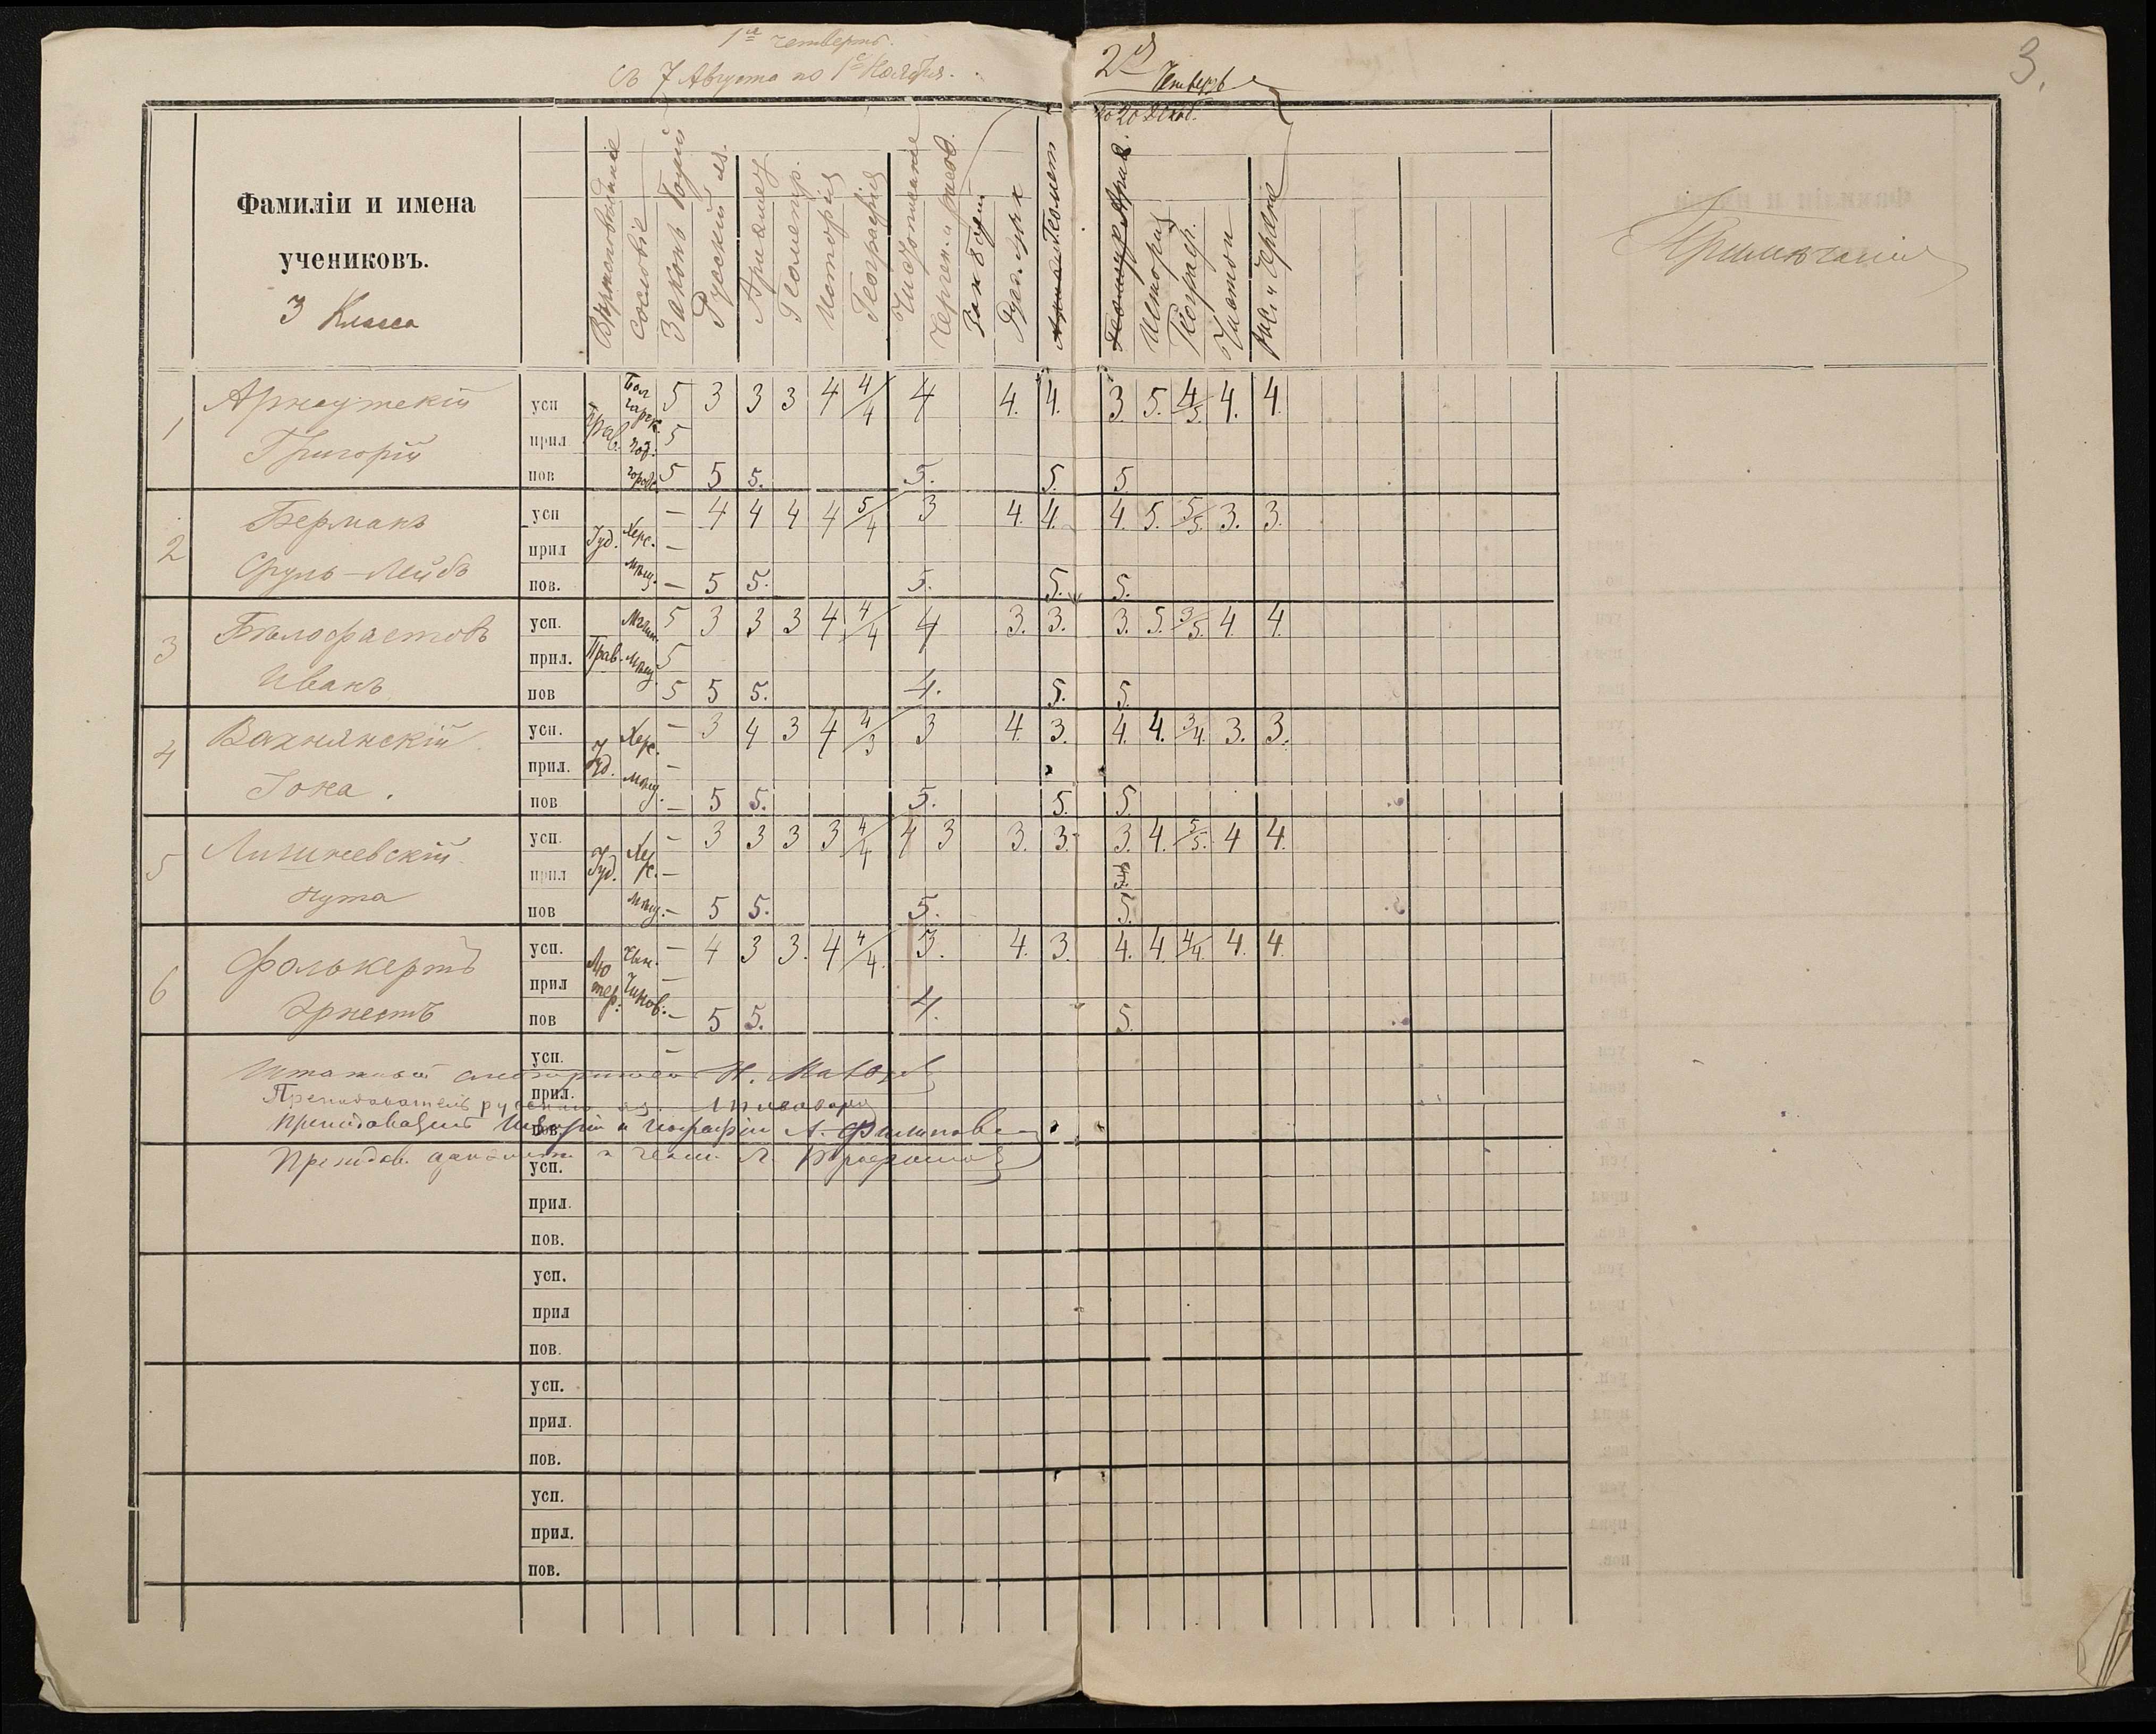 1ᵃ четверть.
Съ 7 Августа по 1ᵉ Ноября.
2ᵃ Четверть
до 20 Декаб.
3.
Фамиліи и имена
учениковъ.
3 Класса
Вѣроисповѣданіе
Сословіе
Законъ Божій
Русскій яз.
Ариѳмет
Геометр.
Исторія
Географія
Чистописаніе
Черчен. и рисов.
Зак Божій
Русс. язык
Геомет
Ариѳ.
Исторія
Географ.
Чистоп
рис. и черчен
Примѣчанія
1 Арнаутскій
Григорій
усп Прав. 5 3 3 3 4 4/4 4 4. 4. 3. 5. 4/5. 4. 4.
прил 5
пов 5 5 5. 5. 5. 5.
2 Берманъ
Сруль-Лейбъ
усп Іуд. Херс. мѣщ. — 4 4 4 4 5/4 3 4. 4. 4. 5. 5/5. 3. 3.
прил —
пов. — 5 5. 5. 5. 5.
3 Бѣлофастовъ
Иванъ
усп. Прав. мѣщ 5 3 3 3 4 4/4 4 3. 3. 3. 5. 3/5. 4. 4.
прил. 5
пов 5 5 5. 4. 5. 5.
4 Вахнянскій
Іона.
усп. Іуд. Херс. мѣщ. — 3 4 3 4 4/3 3 4. 3. 4. 4. 3/4. 3. 3.
прил. —
пов — 5 5. 5. 5. 5.
5 Личиневскій
Нута
усп. Іуд. Херс. мѣщ. — 3 3 3 3 4/4 4 3 3. 3. 3. 4. 5/5. 4 4.
прил —
пов — 5 5. 5. 5.
6 Фолькертъ
Эрнестъ
усп. Лютер. Чинов. — 4 3 3. 4 4/4. 3. 4. 3. 4. 4. 4/4. 4. 4.
прил —
пов — 5 5. 4. 5.
усп.
Штатный смотритель Н.
прил.
Преподаватель русскаго яз.
Преподаватель Исторіи и географіи А. Филиппов
пов.
Преподав. ариѳмет. и геом. Л.
усп.
прил.
пов.
усп.
прил
пов.
усп.
прил.
пов.
усп.
прил.
пов.